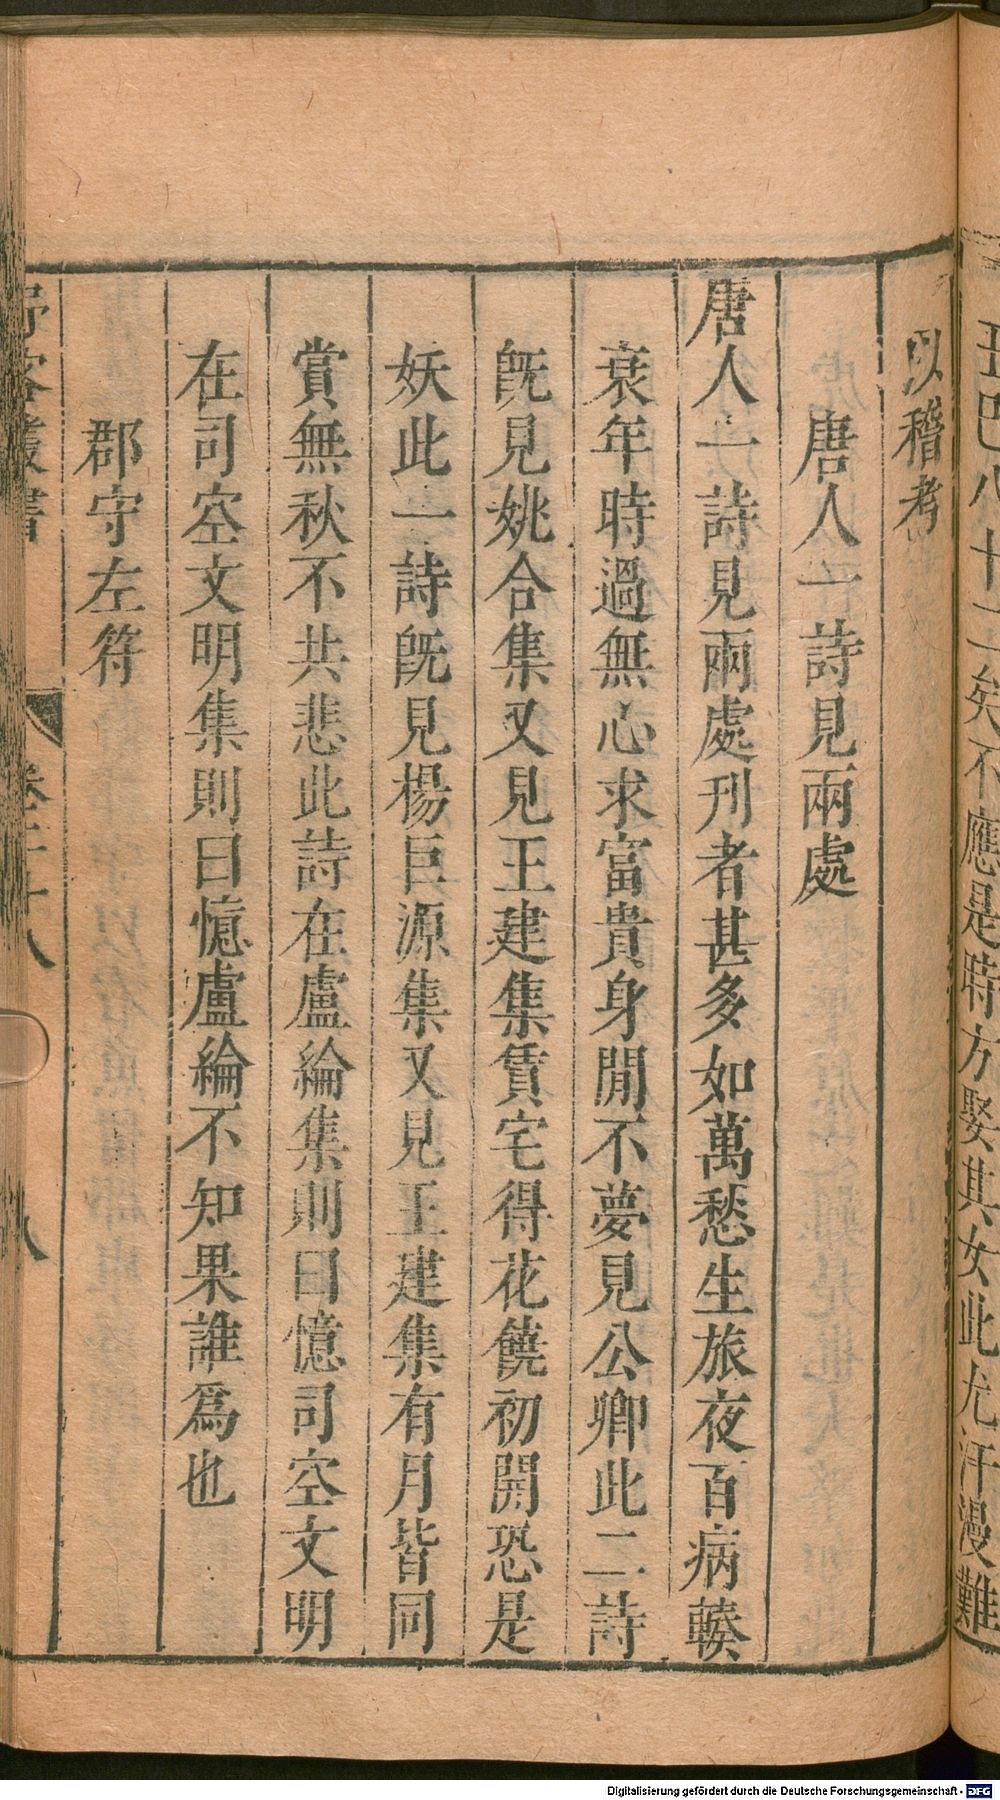 五巴八十二矣不應是時方娶其女此尤汗漫難
以稽考
唐人一詩見兩處
唐人一詩見兩處刊者甚多如萬愁生旅夜百病輳
衰年時過無心求富貴身閒不夢見公卿此二詩
旣見姚合集又見王建集賃宅得花饒初開恐是
妖此一詩旣見楊巨源集又見王建集有月皆同
賞無秋不共悲此詩在盧綸集則曰憶司空文明
在司空文明集則曰憶盧綸不知果誰爲也
郡守左符
野客叢書 卷二十八 八
Digitalisierung gefördert durch die Deutsche Forschungsgemeinschaft - DFG